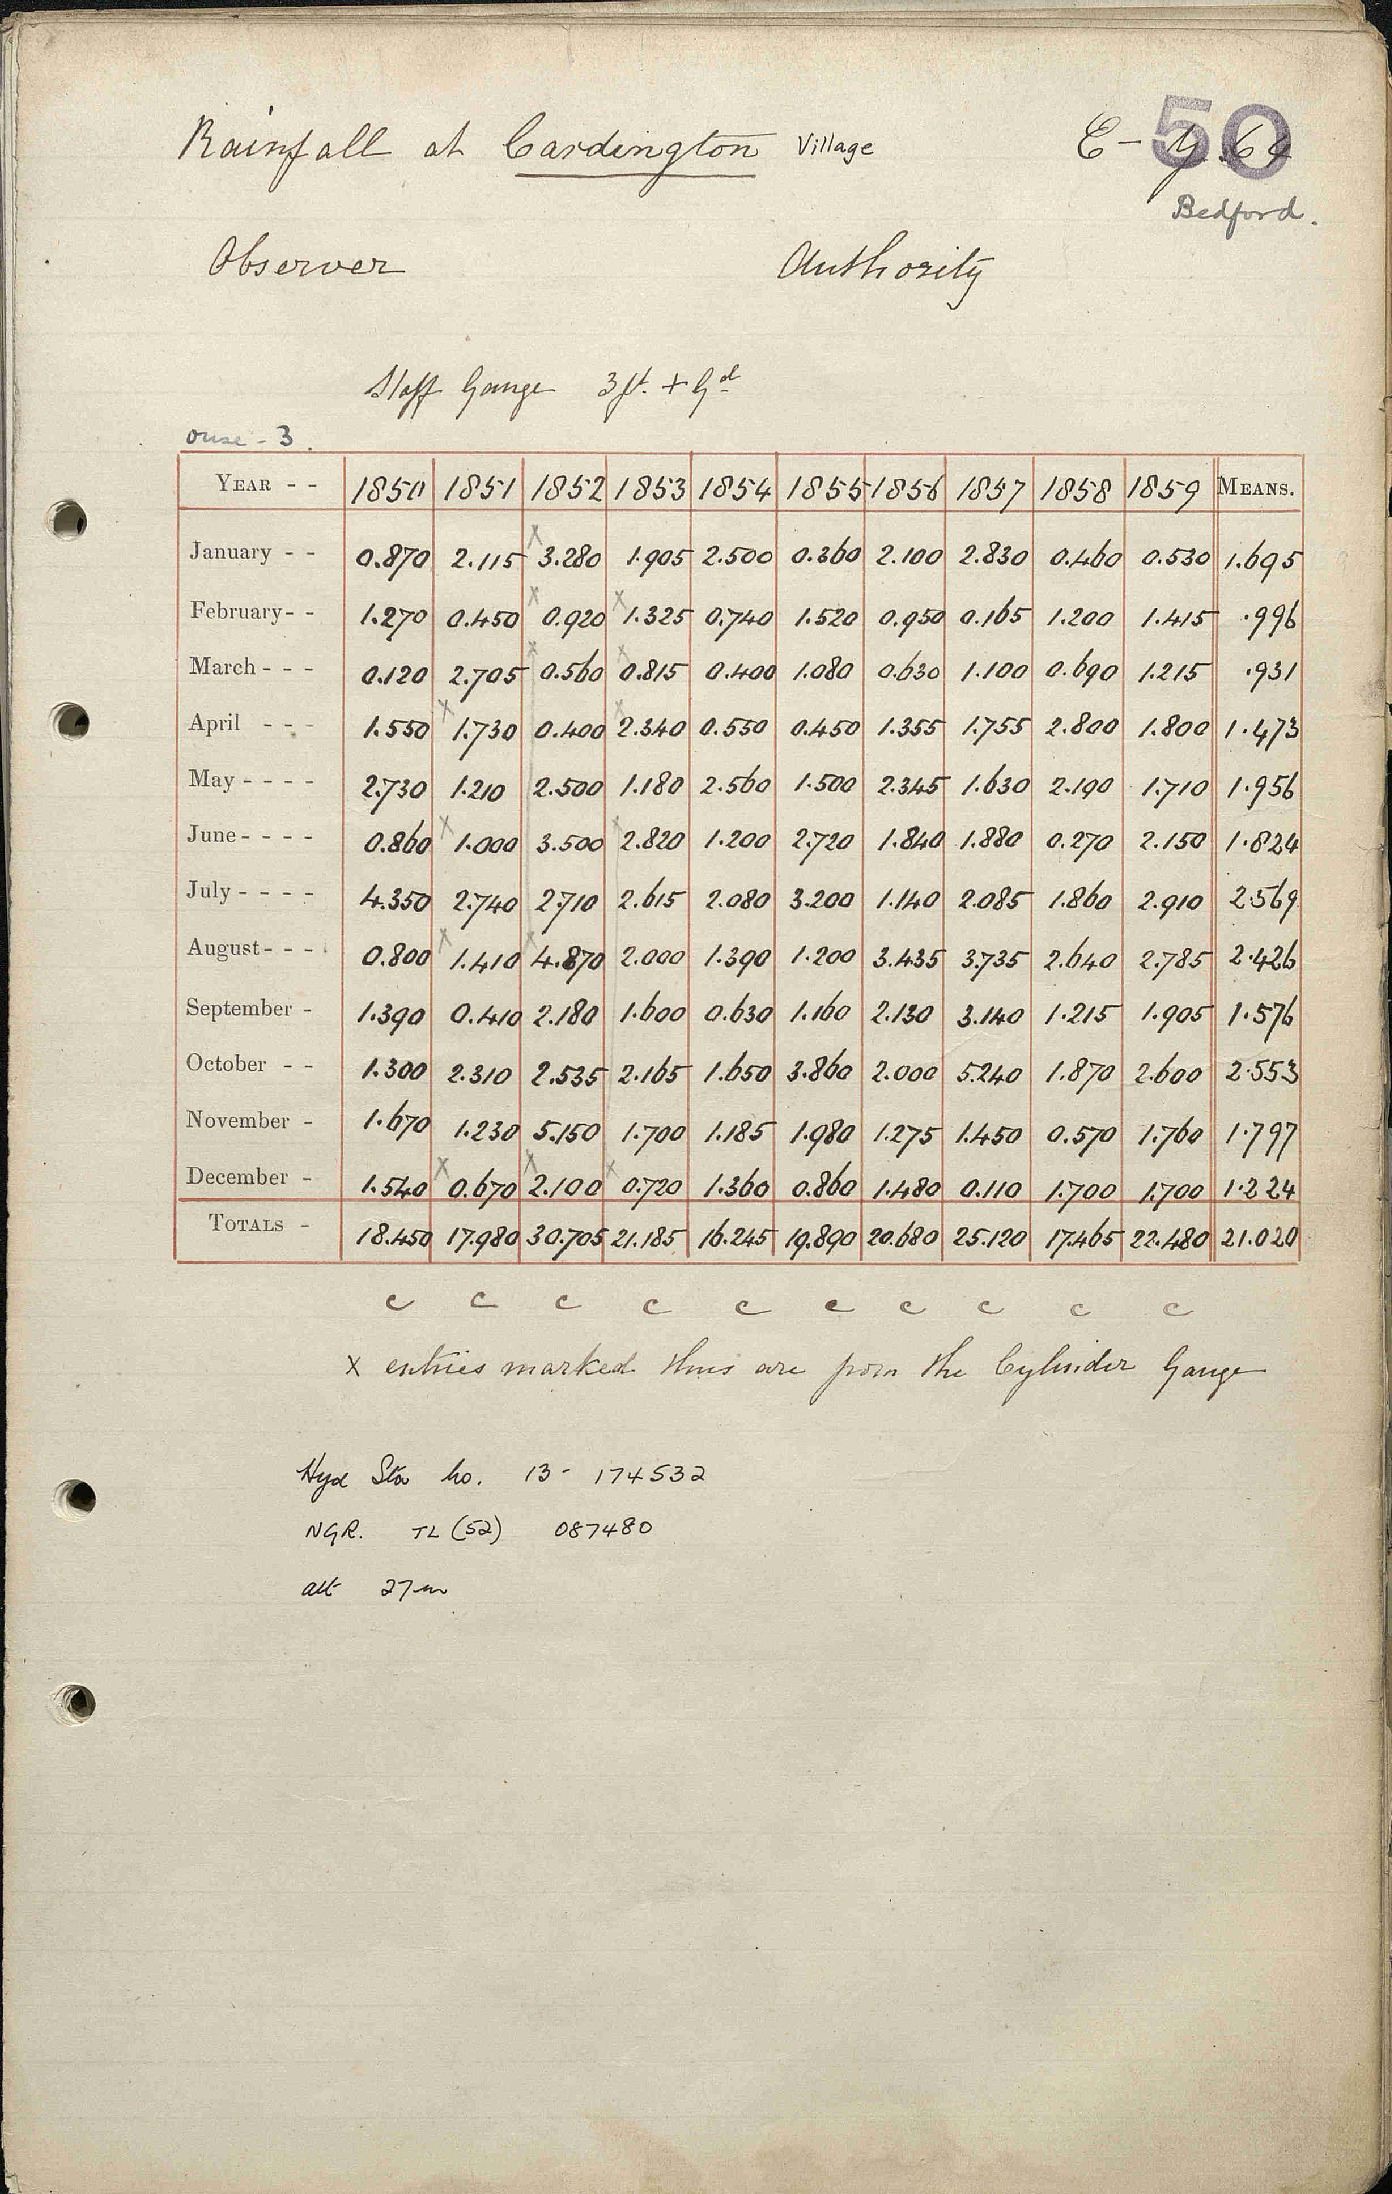 50
Rainfall at Cardington Village E-
Bedford.
Observer Authority
Staff Gauge 3 ft. + Gd
ouse - 3.
YEAR - - 1850 1851 1852 1853 1854 1855 1856 1857 1858 1859 MEANS.
January - - 0.870 2.115 x 3.280 1.905 2.500 0.360 2.100 2.830 0.460 0.530 1.695
February - - 1.270 0.450 x 0.920 x 1.325 0.740 1.520 0.950 0.165 1.200 1.415 .996
March - - - 0.120 2.705 x 0.560 x 0.815 0.400 1.080 0.630 1.100 0.690 1.215 .931
April - - - 1.550 x 1.730 0.400 x 2.340 0.550 0.450 1.355 1.755 2.800 1.800 1.473
May - - - - 2.730 1.210 2.500 1.180 2.560 1.500 2.345 1.630 2.190 1.710 1.956
June - - - - 0.860 x 1.000 3.500 x 2.820 1.200 2.720 1.840 1.880 0.270 2.150 1.824
July - - - - 4.350 2.740 2.710 2.615 2.080 3.200 1.140 2.085 1.860 2.910 2.569
August - - - 0.800 x 1.410 x 4.870 2.000 1.390 1.200 3.435 3.735 2.640 2.785 2.426
September - 1.390 0.410 2.180 1.600 0.630 1.160 2.130 3.140 1.215 1.905 1.576
October - - 1.300 2.310 2.535 2.165 1.650 3.860 2.000 5.240 1.870 2.600 2.553
November - 1.670 1.230 5.150 1.700 1.185 1.980 1.275 1.450 0.570 1.760 1.797
December - 1.540 x 0.670 x 2.100 x 0.720 1.360 0.860 1.480 0.110 1.700 1.700 1.224
TOTALS - 18.450 17.980 30.705 21.185 16.245 19.890 20.680 25.120 17.465 22.480 21.020
c c c c c c c c c c
x entries marked thus are from the Cylinder Gauge
Hyd Sta No. 13 - 174532
NGR. TL (52) 087480
alt 27m